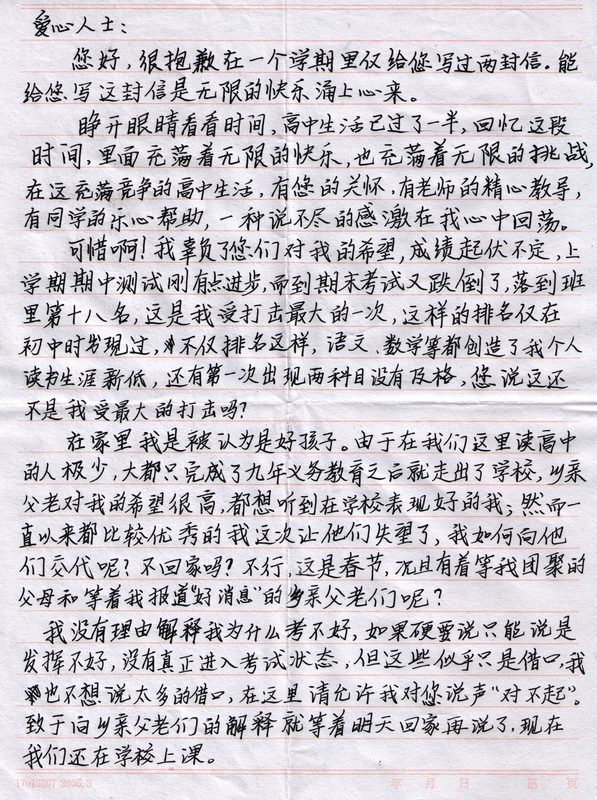 爱心人士：
您好，很抱歉在一个学期里仅给您写过两封信。能
给您写这封信是无限的快乐涌上心来。
睁开眼睛看看时间，高中生活已过了一半，回忆这段
时间，里面充满着无限的快乐，也充满着无限的挑战，
在这充满竞争的高中生活，有您的关怀，有老师的精心教导，
有同学的乐心帮助，一种说不尽的感激在我心中回荡。
可惜啊！我辜负了您们对我的希望，成绩起伏不定，上
学期期中测试刚有点进步，而到期末考试又跌倒了，落到班
里第十八名，这是我受打击最大的一次，这样的排名仅在
初中时发现过，不仅排名这样，语文、数学等都创造了我个人
读书生涯新低，还有第一次出现两科目没有及格，您说这还
不是我受最大的打击吗？
在家里我是被认为是好孩子。由于在我们这里读高中
的人极少，大都只完成了九年义务教育之后就走出了学校，乡亲
父老对我的希望很高，都想听到在学校表现好的我；然而一
直以来都比较优秀的我这次让他们失望了，我如何向他
们交代呢？不回家吗？不行，这是春节，况且有着等我团聚的
父母和等着我报道“好消息”的乡亲父老们呢？
我没有理由解释我为什么考不好，如果硬要说只能说是
发挥不好，没有真正进入考试状态，但这些似乎只是借口，我
也不想说太多的借口，在这里请允许我对您说声“对不起”。
致于向乡亲父老们的解释就等着明天回家再说了，现在
我们还在学校上课。
17015207 2005.3 年 月 日 第 页